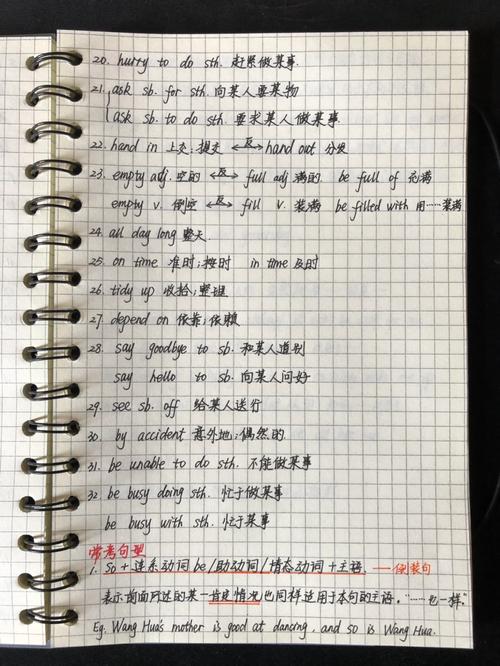 20. hurry to do sth. 赶紧做某事.
21. ask sb. for sth. 向某人要某物
ask sb. to do sth. 要求某人做某事.
22. hand in 上交;提交 <-反-> hand out 分发
23. empty adj. 空的 <-反-> full adj 满的. be full of 充满
empty v. 倒空 <-反-> fill v. 装满 be filled with 用……装满
24. all day long 整天.
25. on time 准时;按时 in time 及时
26. tidy up 收拾;整理
27. depend on 依靠;依赖
28. say goodbye to sb. 和某人道别
say hello to sb. 向某人问好
29. see sb. off 给某人送行
30. by accident 意外地;偶然的.
31. be unable to do sth. 不能做某事
32. be busy doing sth. 忙于做某事
be busy with sth. 忙于某事
常考句型
1. So + 连系动词 be/助动词/情态动词 + 主语. —— 倒装句
表示前面所述的某一肯定情况也同样适用于本句的主语。"……也一样。"
Eg. Wang Hua's mother is good at dancing, and so is Wang Hua.